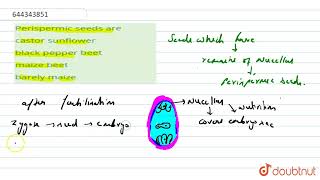 644343851
Perispermic seeds are
castor sunflower
black pepper beet
maize beet
barely maize
Seeds which have
remains of nucellus
perispermic seeds.
after fertilization
zygote → seed → embryo
→ Nucellus
→ nutrition
covers embryo sac
doubtnut